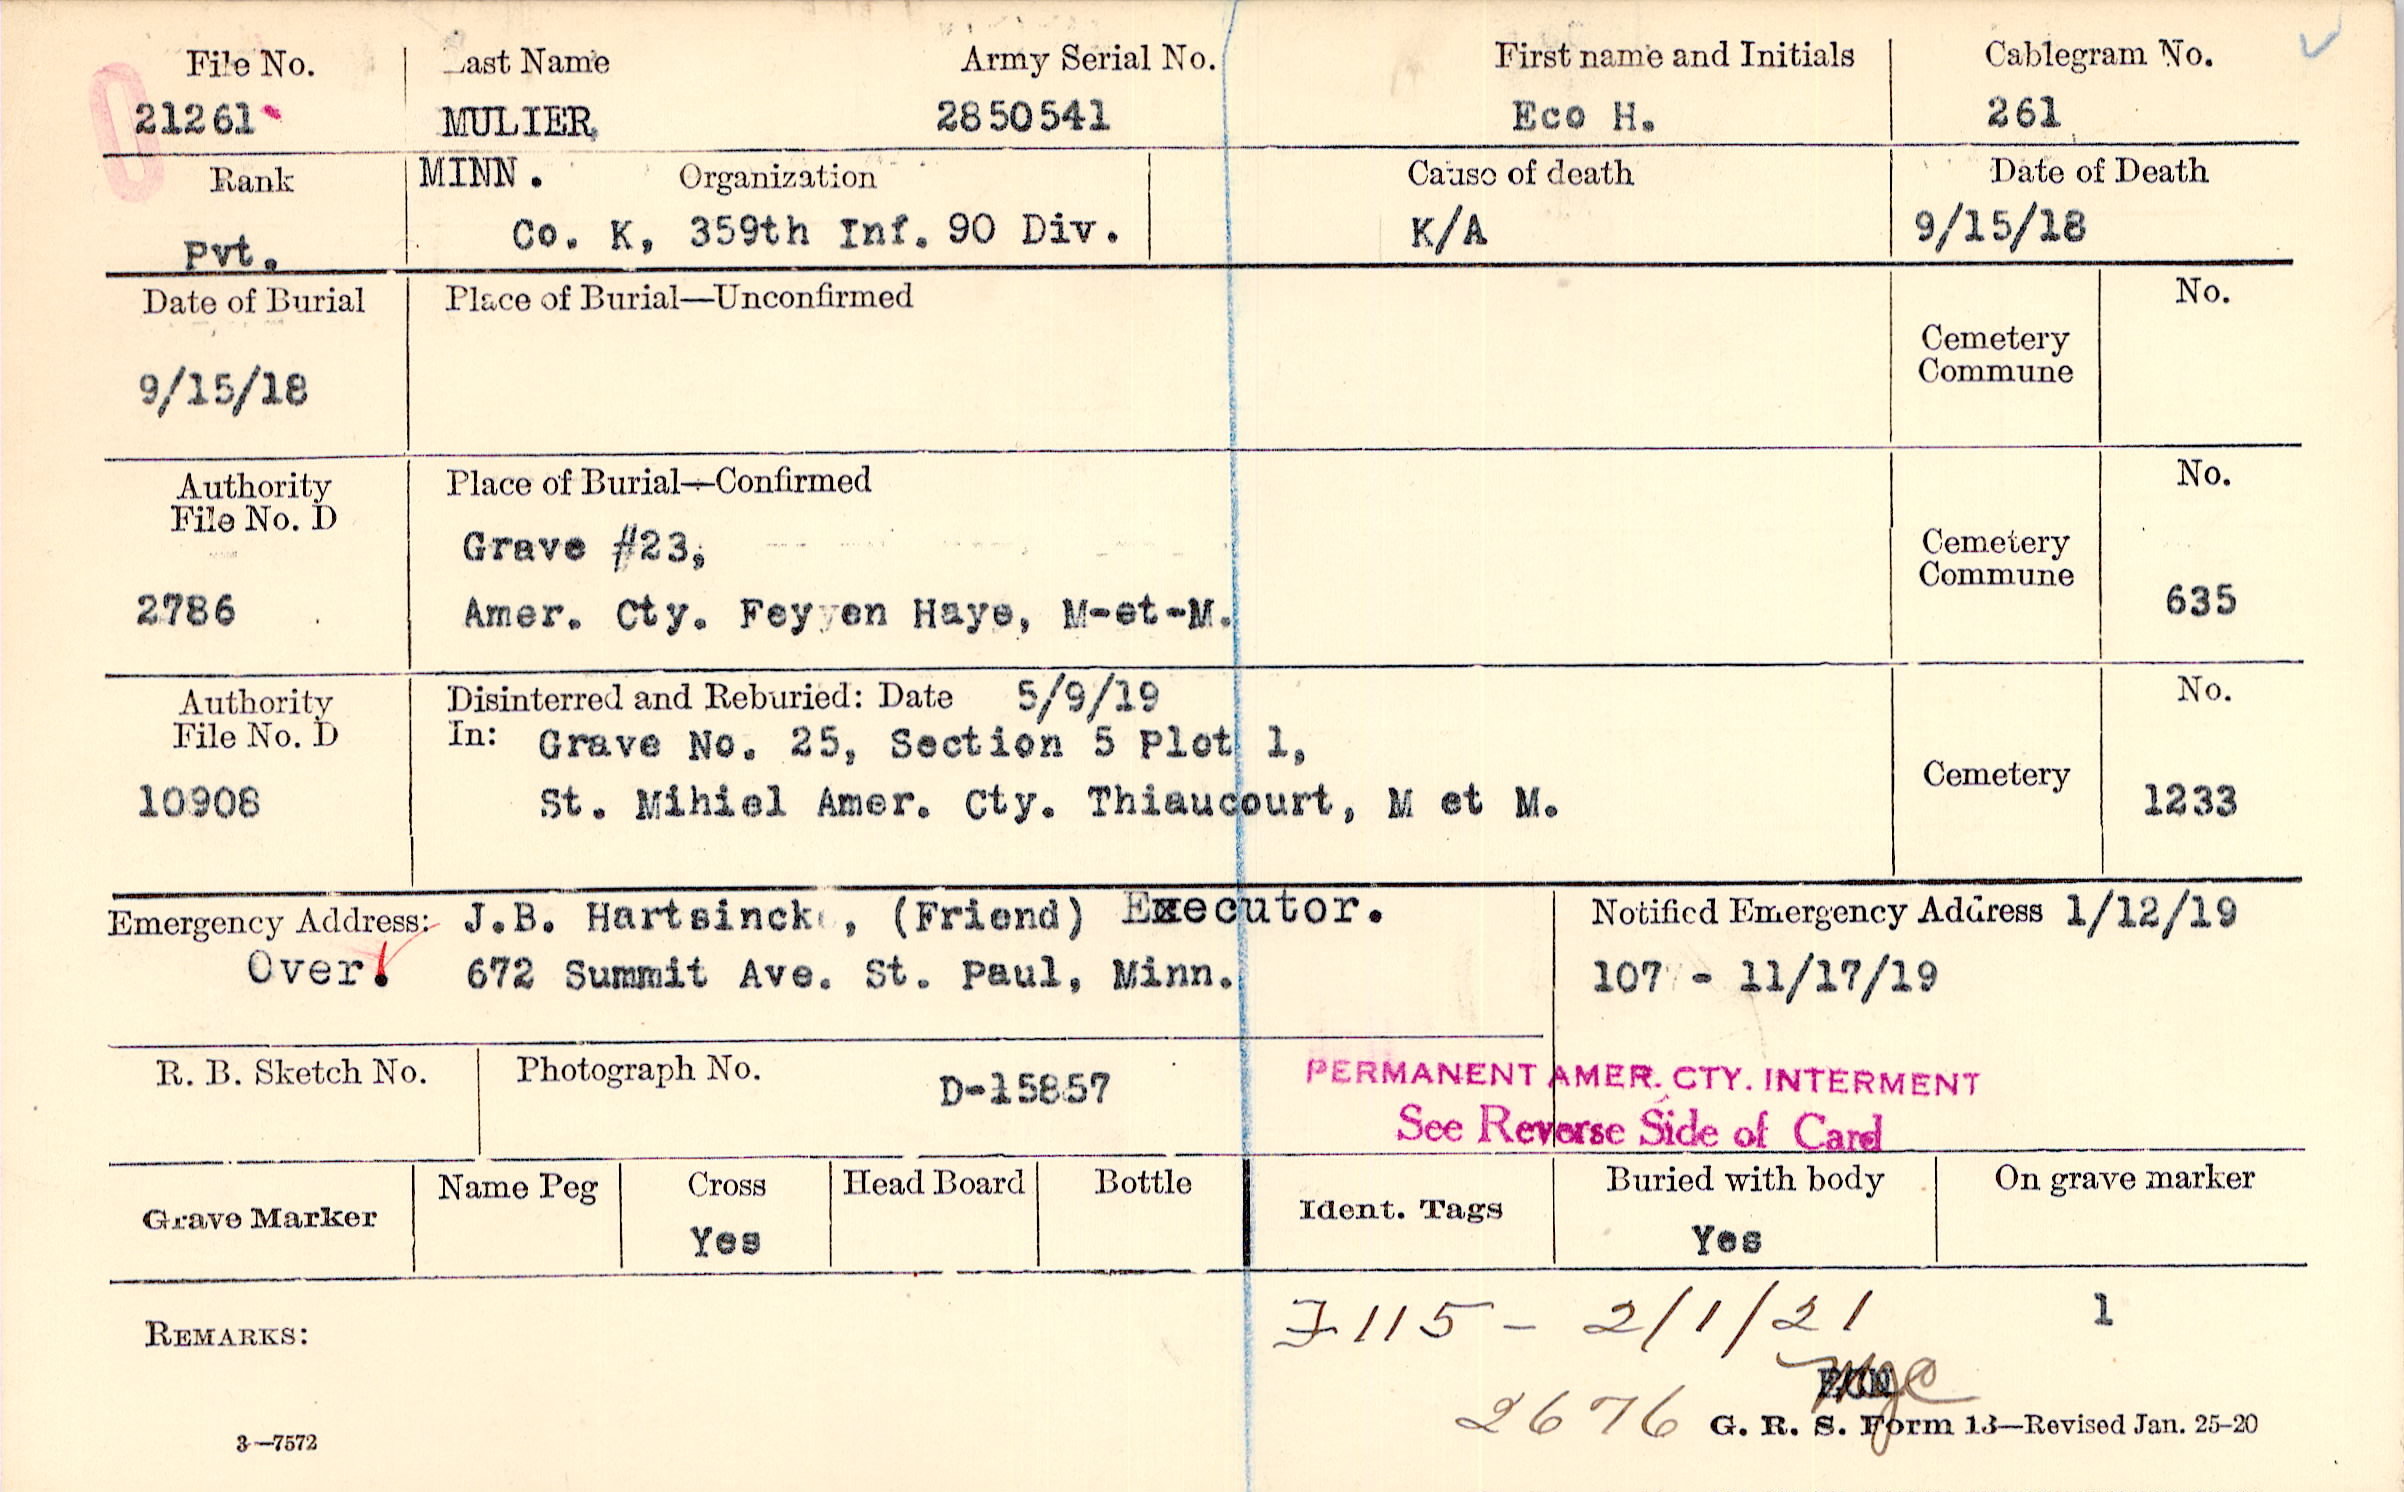 File No. Last Name Army Serial No. First name and Initials Cablegram No.
21261 MULIER, 2850541 Eco H. 261
Rank MINN. Organization Cause of death Date of Death
Pvt. Co. K, 359th Inf. 90 Div. K/A 9/15/18
Date of Burial Place of Burial—Unconfirmed No.
9/15/18 Cemetery
Commune
Authority Place of Burial—Confirmed No.
File No. D
Grave #23, Cemetery
Commune
2786 Amer. Cty. Fey en Haye, M-et-M. 635
Authority Disinterred and Reburied: Date 5/9/19 No.
File No. D In: Grave No. 25, Section 5 Plot 1,
Cemetery
10908 St. Mihiel Amer. Cty. Thiaucourt, M et M. 1233
Emergency Address: J.B. Hartsinck, (Friend) Executor. Notified Emergency Address 1/12/19
Over. 672 Summit Ave. St. Paul, Minn. 107 - 11/17/19
R. B. Sketch No. Photograph No. D-15857
PERMANENT AMER. CTY. INTERMENT
See Reverse Side of Card
Grave Marker Name Peg Cross Head Board Bottle Ident. Tags Buried with body On grave marker
Yes Yes
REMARKS: 115 - 2/1/21 1
2676 G. R. S. Form 13—Revised Jan. 25-20
3—7572